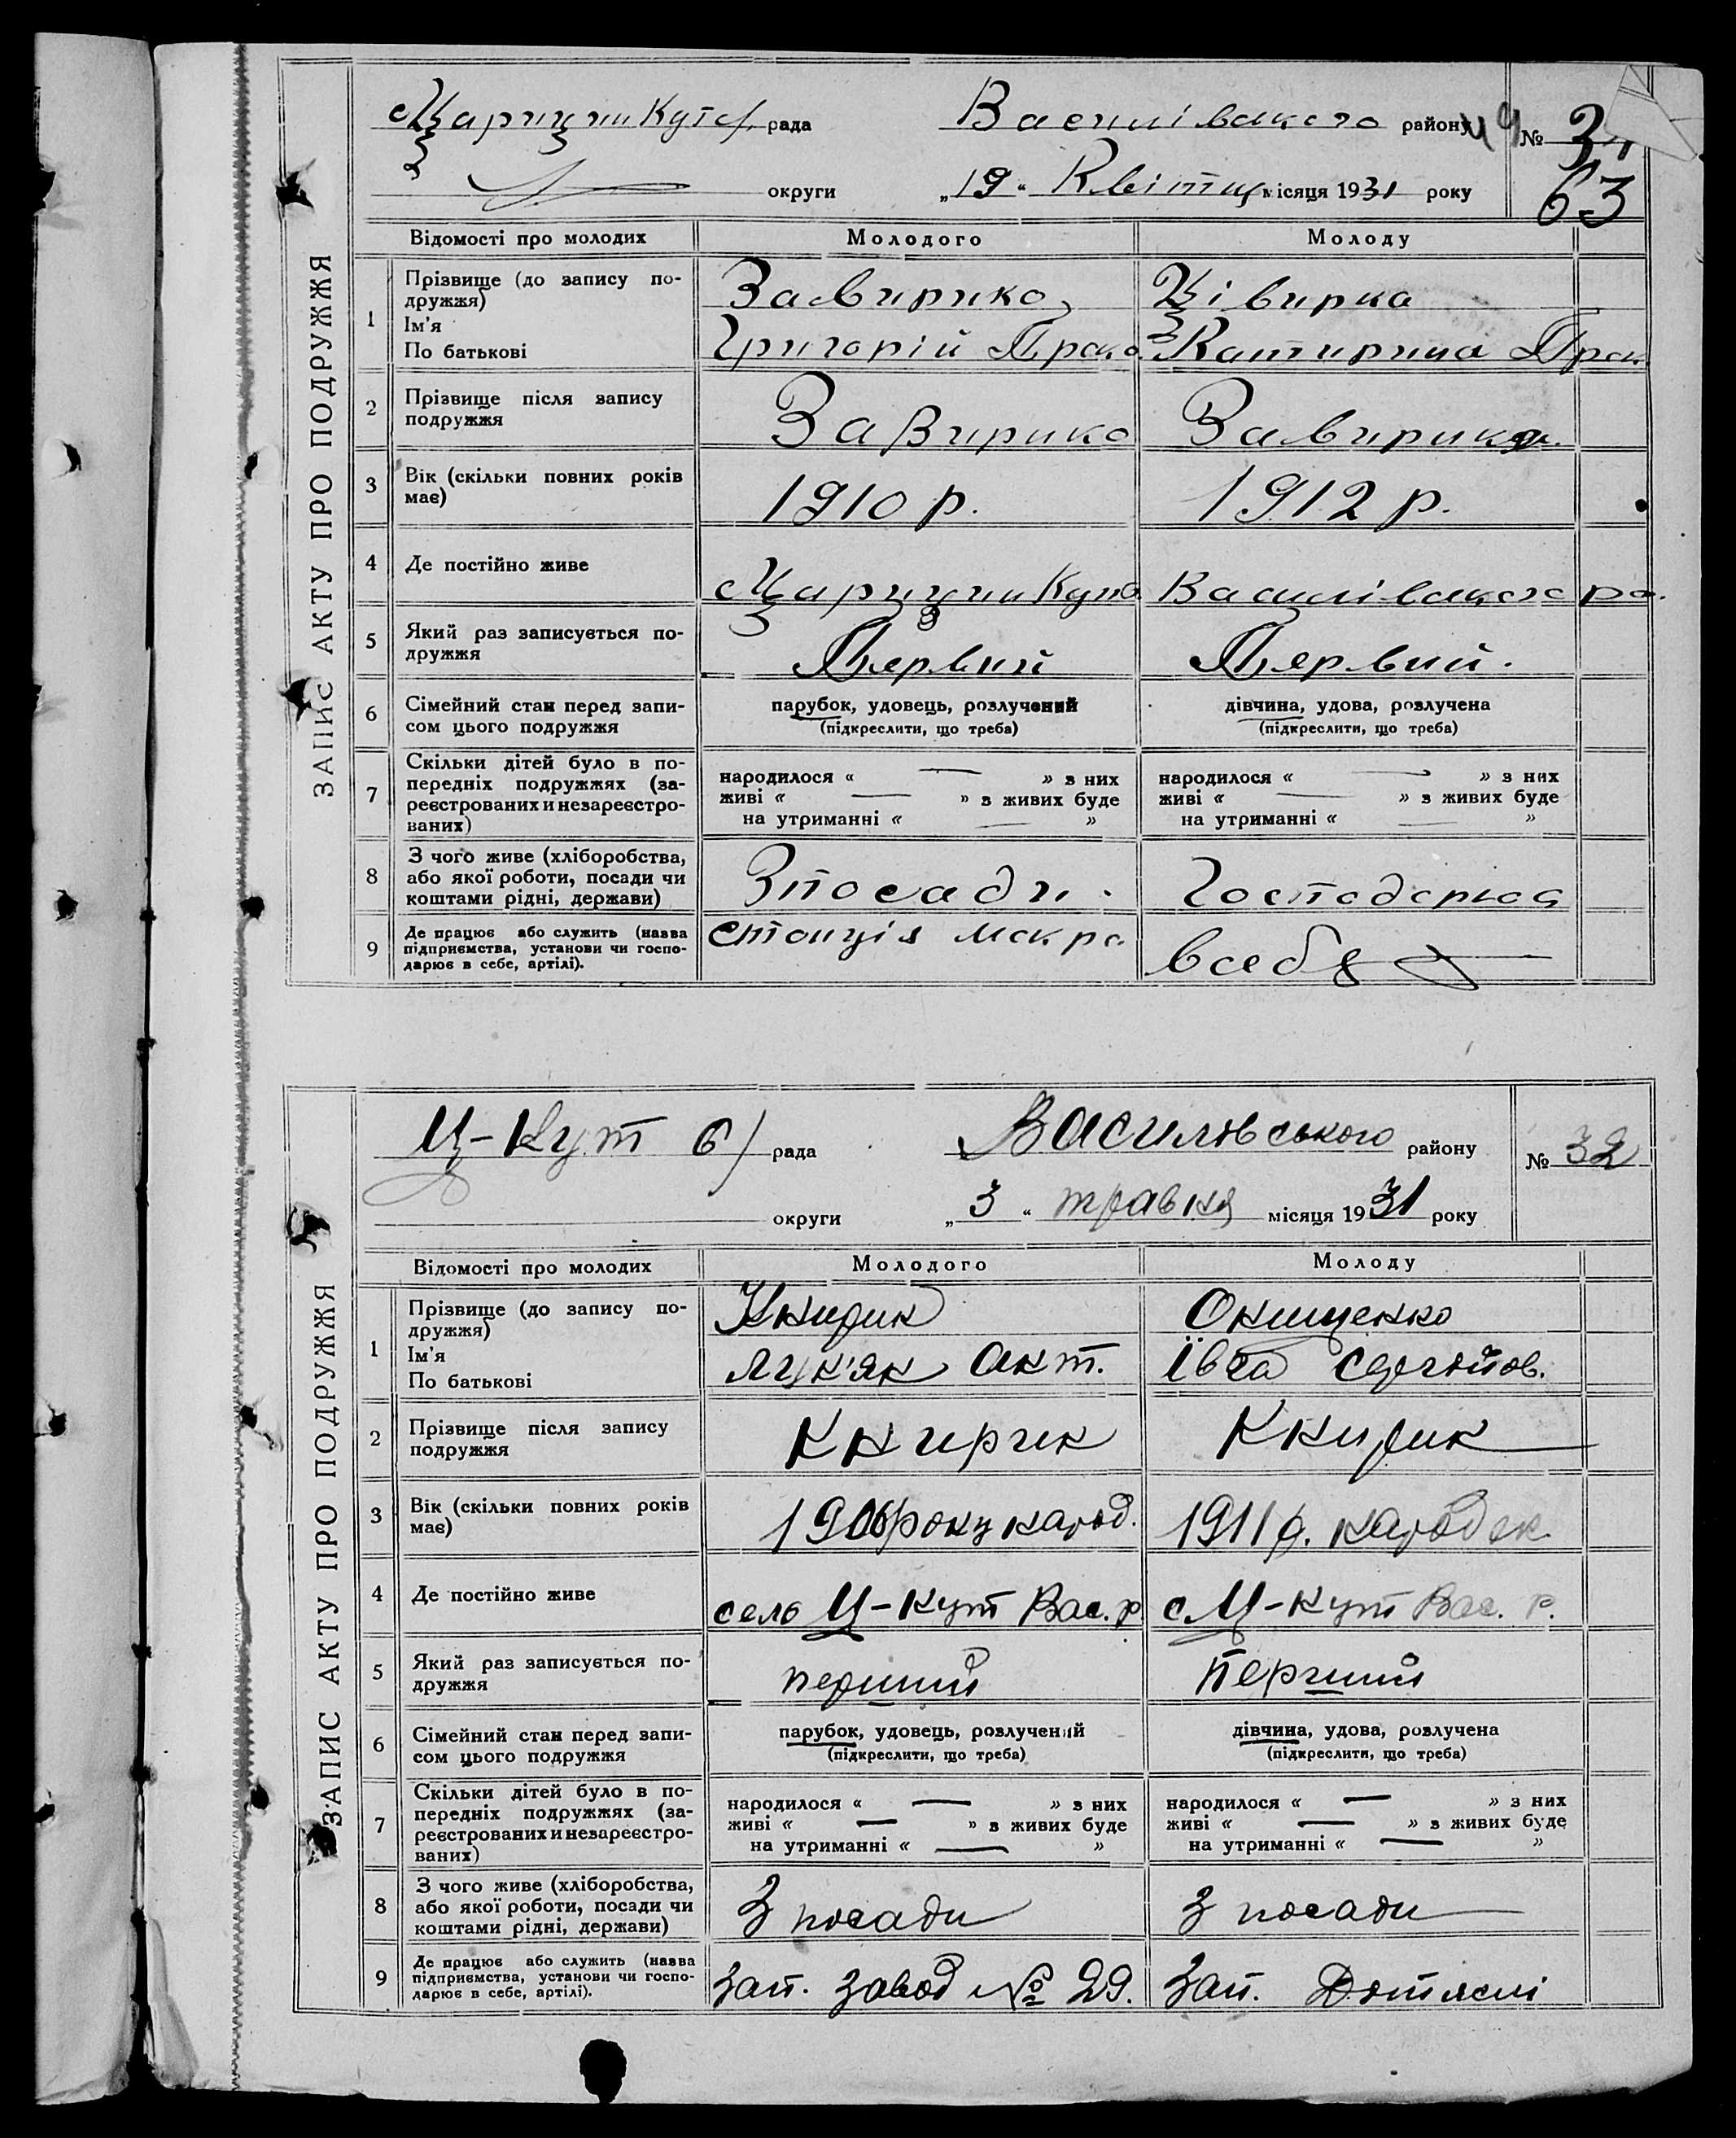 ЗАПИС АКТУ ПРО ПОДРУЖЖЯ
Царицин Кутс. рада Василівського району № 31
округи „19“ Квітня місяця 1931 року 63
Відомості про молодих Молодого Молоду
1 Прізвище (до запису по-
дружжя) Завирико Цівирка
Ім'я
По батькові Григорій Прок. Катирина Прок.
2 Прізвище після запису
подружжя Завирико Завирико
3 Вік (скільки повних років
має) 1910 р. 1912 р.
4 Де постійно живе Царицин Кут Василівского ра.
5 Який раз записується по-
дружжя Первий Первий.
6 Сімейний стан перед запи-
сом цього подружжя парубок, удовець, розлучений
(підкреслити, що треба) дівчина, удова, розлучена
(підкреслити, що треба)
7 Скільки дітей було в по-
передніх подружжях (за-
реєстрованих и незареєстро-
ваних) народилося « — » з них
живі « — » з живих буде
на утриманні « — » народилося « — » з них
живі « — » з живих буде
на утриманні « — »
8 З чого живе (хліборобства,
або якої роботи, посади чи
коштами рідні, держави) Зпосади. Господарюя
9 Де працює або служить (назва
підприємства, установи чи госпо-
дарює в себе, артілі). Станція всебя
ЗАПИС АКТУ ПРО ПОДРУЖЖЯ
Ц-Кут с/ рада Василовського району № 32
округи „3“ травня місяця 1931 року
Відомості про молодих Молодого Молоду
1 Прізвище (до запису по-
дружжя) Книрик Онищенко
Ім'я
По батькові Лук'ян Ант. Івга Сергійов.
2 Прізвище після запису
подружжя Книрик Книрик
3 Вік (скільки повних років
має) 1906 року народ. 1911 р. народжен.
4 Де постійно живе село Ц-Кут Вас. р. с Ц-Кут Вас. р.
5 Який раз записується по-
дружжя перший перший
6 Сімейний стан перед запи-
сом цього подружжя парубок, удовець, розлучений
(підкреслити, що треба) дівчина, удова, розлучена
(підкреслити, що треба)
7 Скільки дітей було в по-
передніх подружжях (за-
реєстрованих и незареєстро-
ваних) народилося « — » з них
живі « — » з живих буде
на утриманні « — » народилося « — » з них
живі « — » з живих буде
на утриманні « — »
8 З чого живе (хліборобства,
або якої роботи, посади чи
коштами рідні, держави) З посади З посади
9 Де працює або служить (назва
підприємства, установи чи госпо-
дарює в себе, артілі). Зап. завод № 29. Зап. Дотяслі